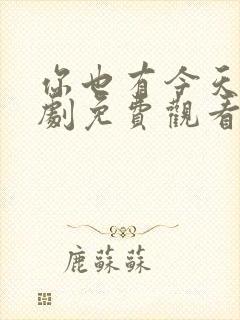 你也有今天
劇免費觀看
鹿蘇蘇